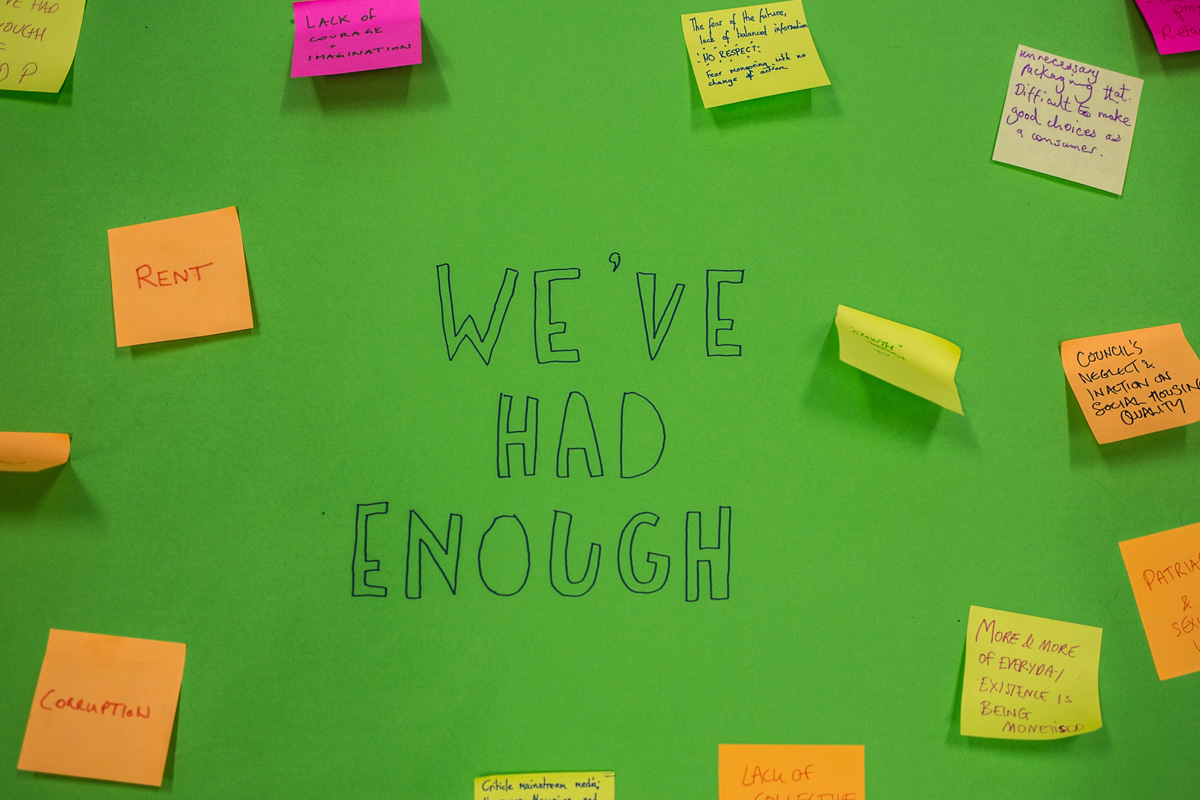 VE HAD
OUGH
DP
LACK of
COURAGE
+
IMAGINATION
The fear of the future,
lack of balanced information
NO RESPECT:
Fear mongering with no
change of action
unnecessary
packaging that.
Difficult to make
good choices as
a consumer.
RENT
WE'VE
HAD
ENOUGH
"GROWTH"
COUNCIL'S
NEGLECT &
INACTION ON
SOCIAL HOUSING
QUALITY
PATRIA
&
SEX
MORE & MORE
OF EVERYDAY
EXISTENCE IS
BEING
MONETISED
CORRUPTION
Criticle mainstream media;
LACK OF
COLLECTIVE